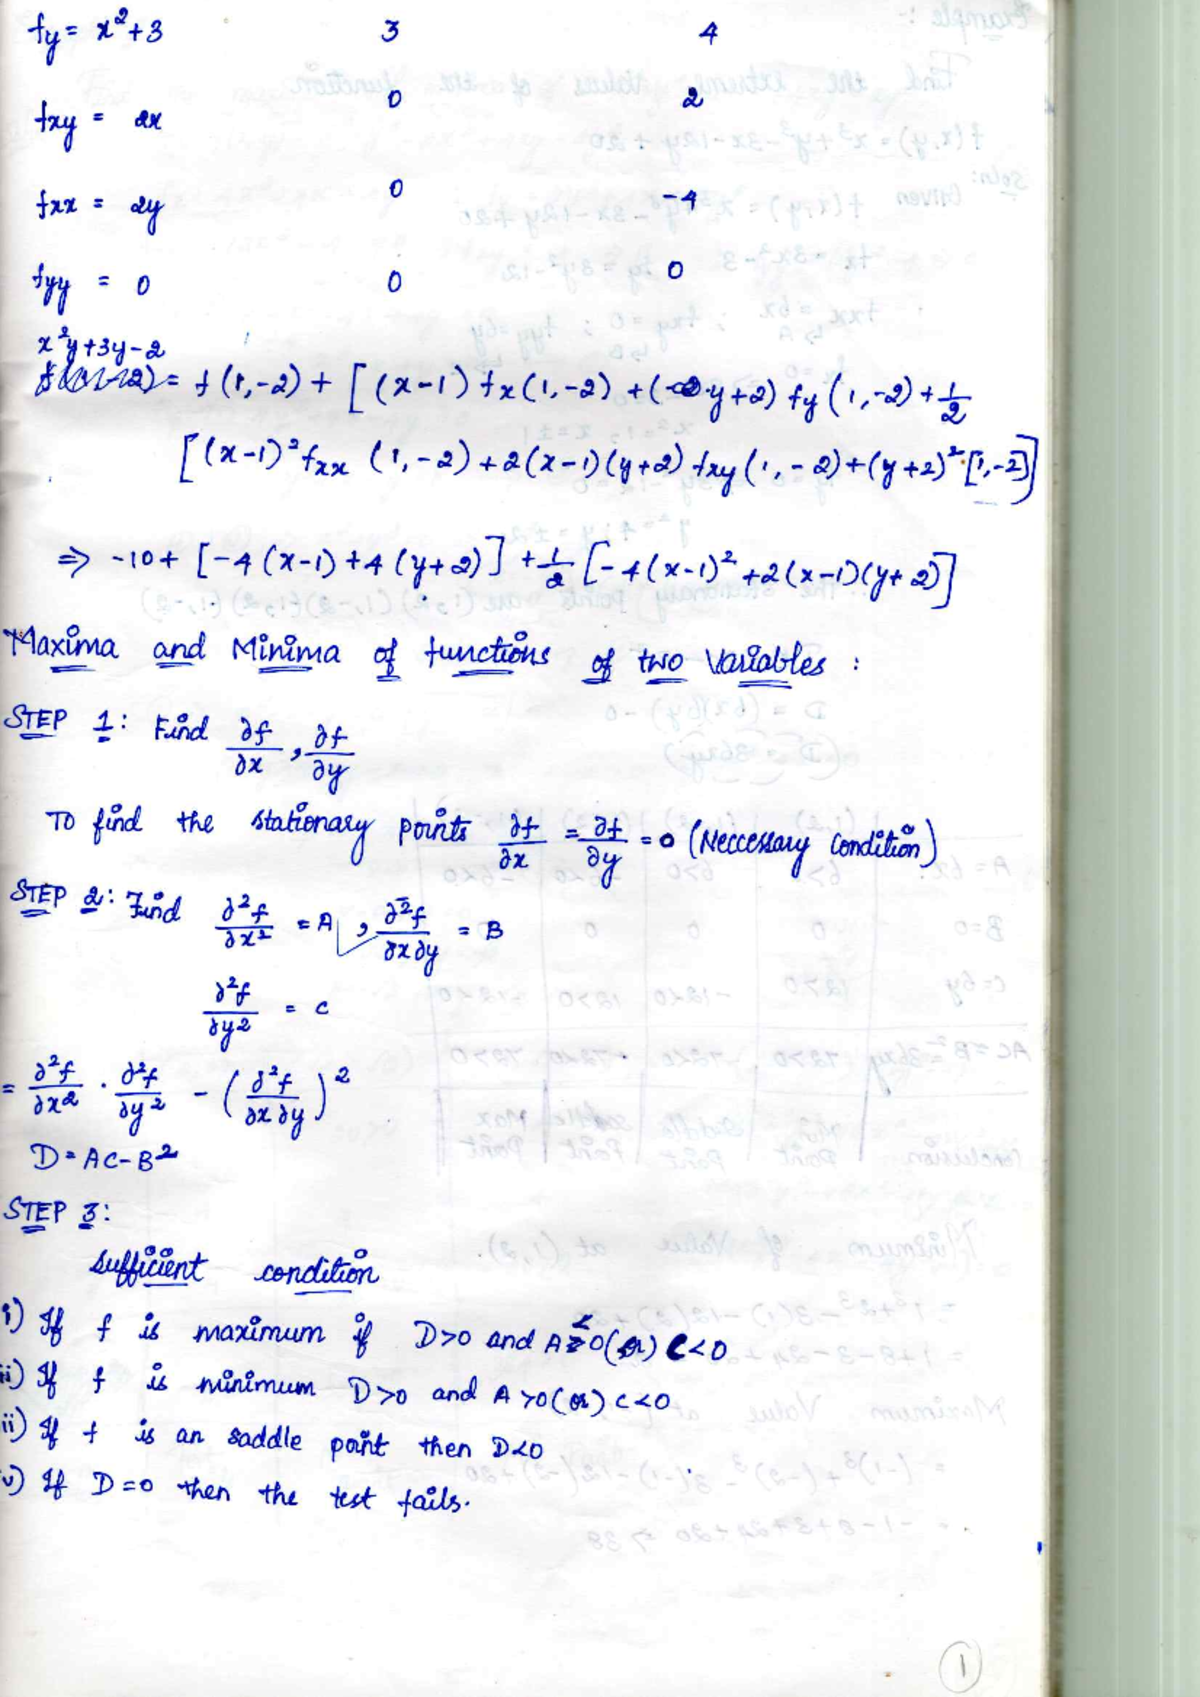 fy = x²+3 3 4
fxy = 2x 0 2
fxx = 2y 0 -4
fyy = 0 0 0
x²y+3y-2
= f(1,-2) + [(x-1) fx(1,-2) + (y+2) fy(1,-2) + 1/2
[(x-1)² fxx (1,-2) + 2(x-1)(y+2) fxy(1,-2) + (y+2)² [1,-2]]
⇒ -10 + [-4(x-1) + 4(y+2)] + 1/2 [-4(x-1)² + 2(x-1)(y+2)]
Maxima and Minima of functions of two Variables :
STEP 1: Find ∂f/∂x , ∂f/∂y
To find the stationary points ∂f/∂x = ∂f/∂y = 0 (Neccessary condition)
STEP 2: Find ∂²f/∂x² = A , ∂²f/∂x∂y = B
∂²f/∂y² = C
= ∂²f/∂x² · ∂²f/∂y² - (∂²f/∂x∂y)²
D = AC - B²
STEP 3:
Sufficient condition
i) If f is maximum if D>0 and A<0 (or) C<0
ii) If f is minimum D>0 and A>0 (or) C<0
ii) If f is an saddle point then D<0
v) If D=0 then the test fails.
1